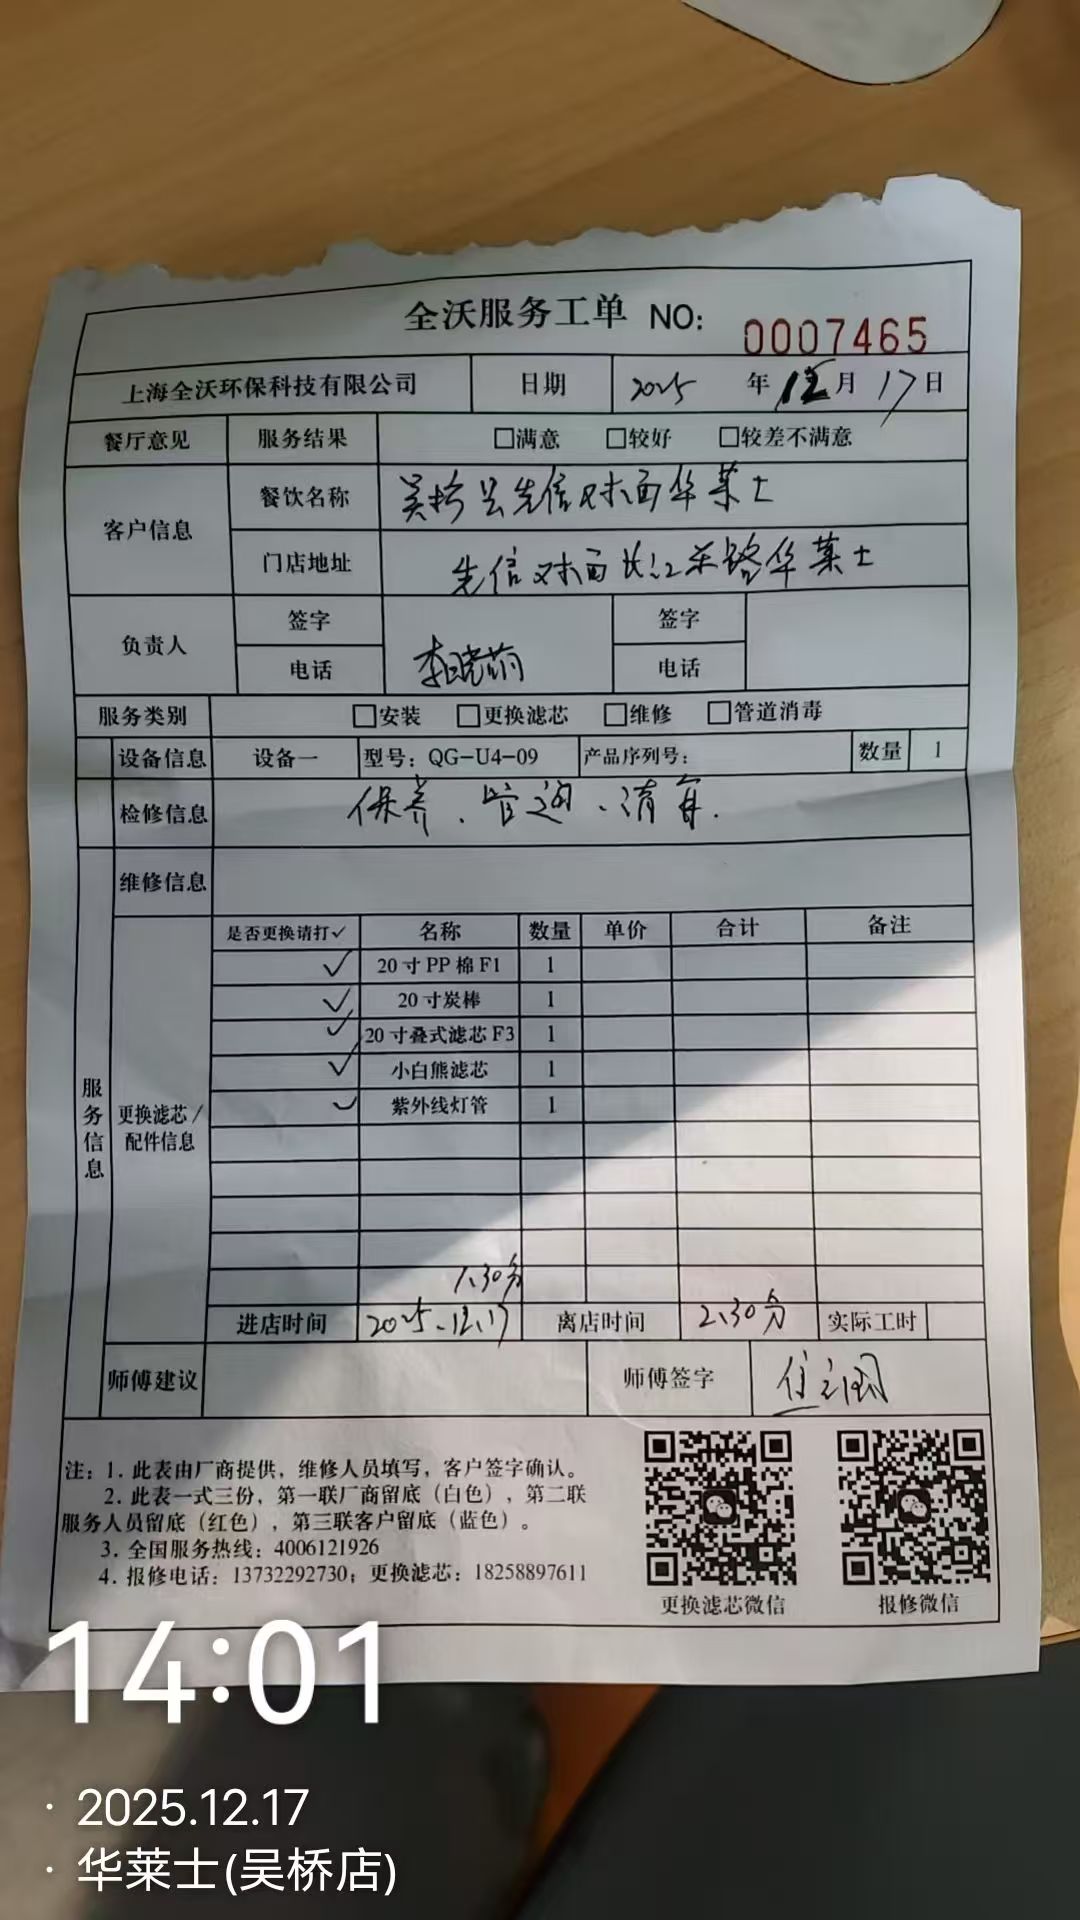 全沃服务工单 NO: 0007465
上海全沃环保科技有限公司 日期 2025 年 12 月 17 日
餐厅意见 服务结果 □满意 □较好 □较差不满意
客户信息 餐饮名称 吴桥县先信对面华莱士
门店地址 先信对面长江东路华莱士
负责人 签字 签字
电话 李晓萌 电话
服务类别 □安装 □更换滤芯 □维修 □管道消毒
设备信息 设备一 型号：QG-U4-09 产品序列号： 数量 1
检修信息 保养、管道、消毒.
维修信息
服务信息
更换滤芯/配件信息
是否更换请打✓ 名称 数量 单价 合计 备注
✓ 20寸PP棉F1 1
✓ 20寸炭棒 1
✓ 20寸叠式滤芯F3 1
✓ 小白熊滤芯 1
✓ 紫外线灯管 1
1.30分
进店时间 2025.12.17 离店时间 2.30分 实际工时
师傅建议 师傅签字
注：1. 此表由厂商提供，维修人员填写，客户签字确认。
2. 此表一式三份，第一联厂商留底（白色），第二联
服务人员留底（红色），第三联客户留底（蓝色）。
3. 全国服务热线：4006121926
4. 报修电话：13732292730；更换滤芯：18258897611
更换滤芯微信 报修微信
14:01
· 2025.12.17
· 华莱士(吴桥店)